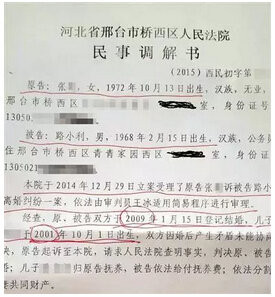 河北省邢台市桥西区人民法院
民事调解书
（2015）西民初字第
原告：张 ，女，1972年10月13日出生，汉族，无业，
邢台市桥西区 室，身份证号
13050
被告：路小利，男，1968年2月15日出生，汉族，公务员
住邢台市桥西区青青家园西区 室，身份证号
1305021
本院于2014年12月29日立案受理了原告张 诉被告路小
离婚纠纷一案，依法由审判员王冰适用简易程序进行审理。
经查，原、被告双方于2009年1月15日登记结婚，儿子
于2001年10月1日出生，双方因婚后产生矛盾未能协
决，原告起诉至本院，请求人民法院查明事实，判决原、
婚，儿子 归原告抚养，被告依法给付抚养费；依法
共同财产。